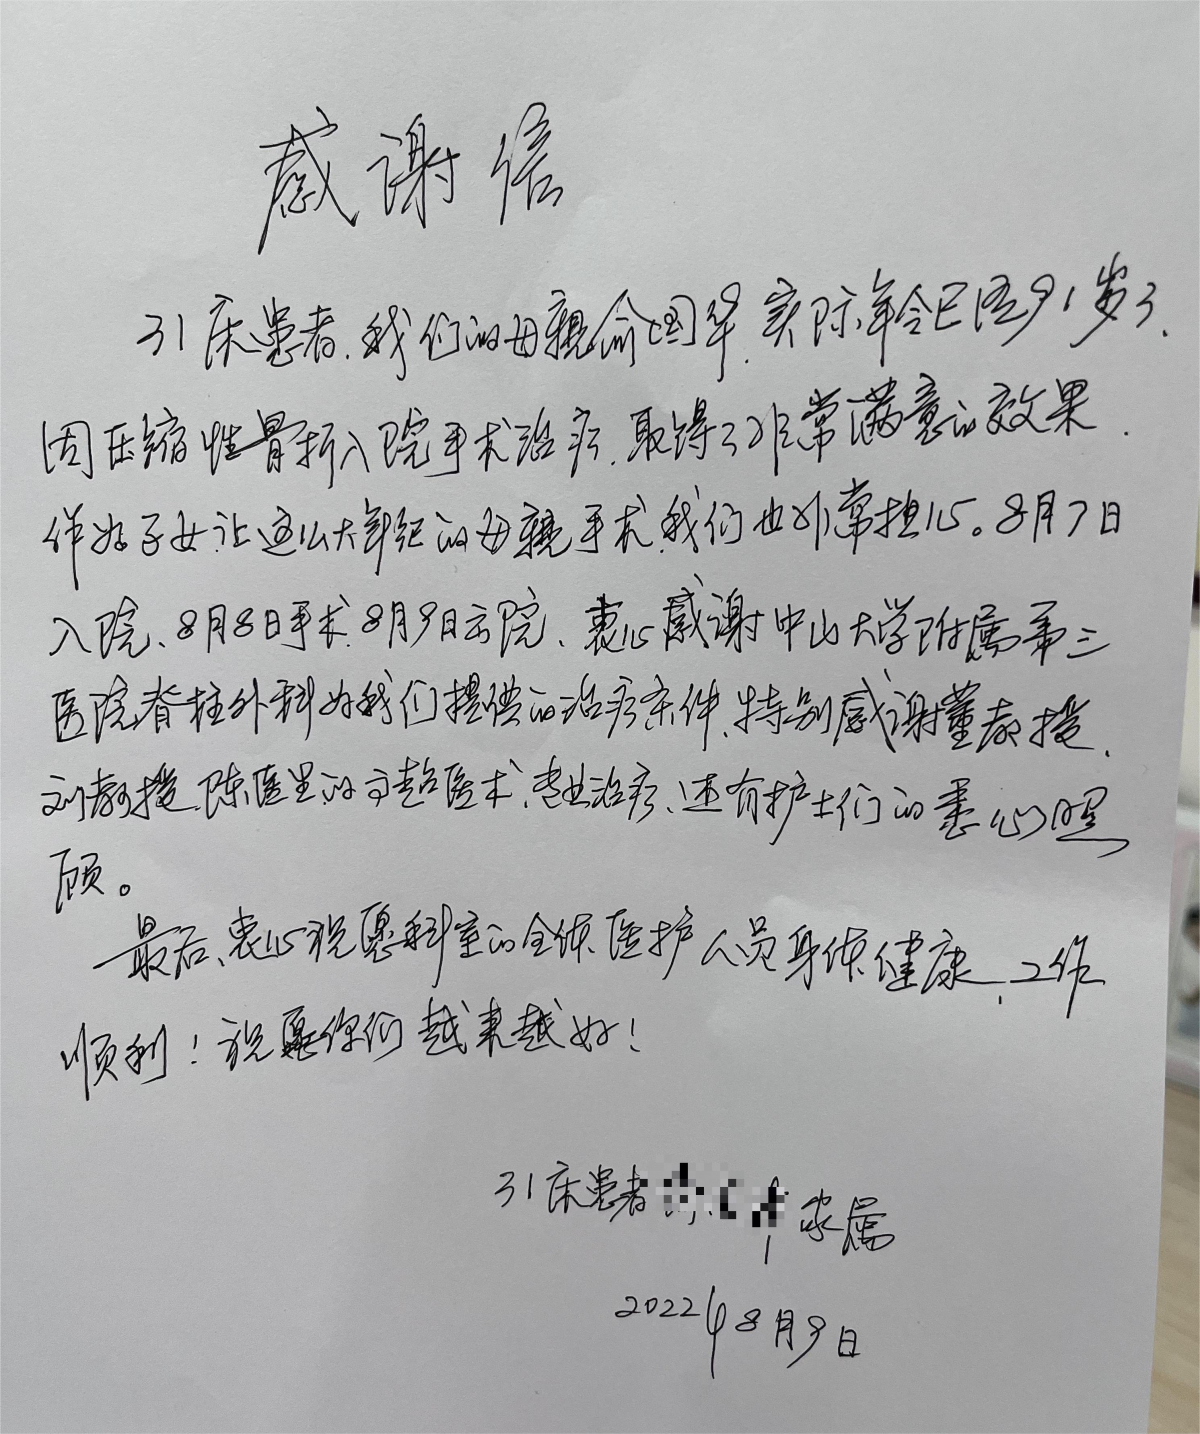 感谢信
31床患者、我们的母亲俞国华、实际年令已经91岁了、
因压缩性骨折入院手术治疗、取得了非常满意的效果、
作为子女、让这么大年纪的母亲手术、我们也非常担心。8月7日
入院、8月8日手术、8月9日出院、衷心感谢中山大学附属第三
医院脊柱外科为我们提供的治疗条件、特别感谢董教授、
刘教授、陈医生的高超医术、专业治疗、还有护士们的悉心照
顾。
最后、衷心祝愿科室的全体医护人员身体健康、工作
顺利！祝愿你们越来越好！
31床患者 家属
2022年8月9日